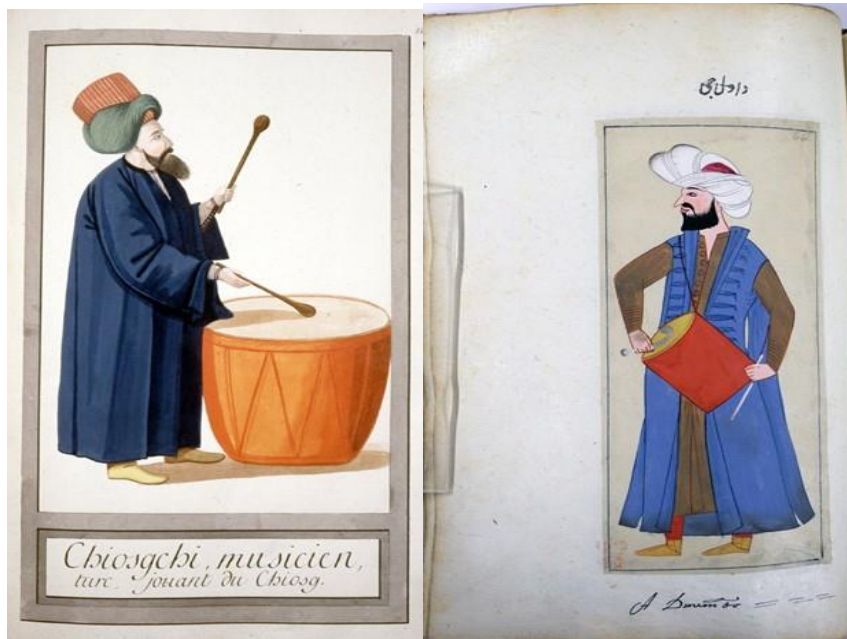 Chiosgchi, musicien,
turc, jouant du Chiosg.
داولجی
A